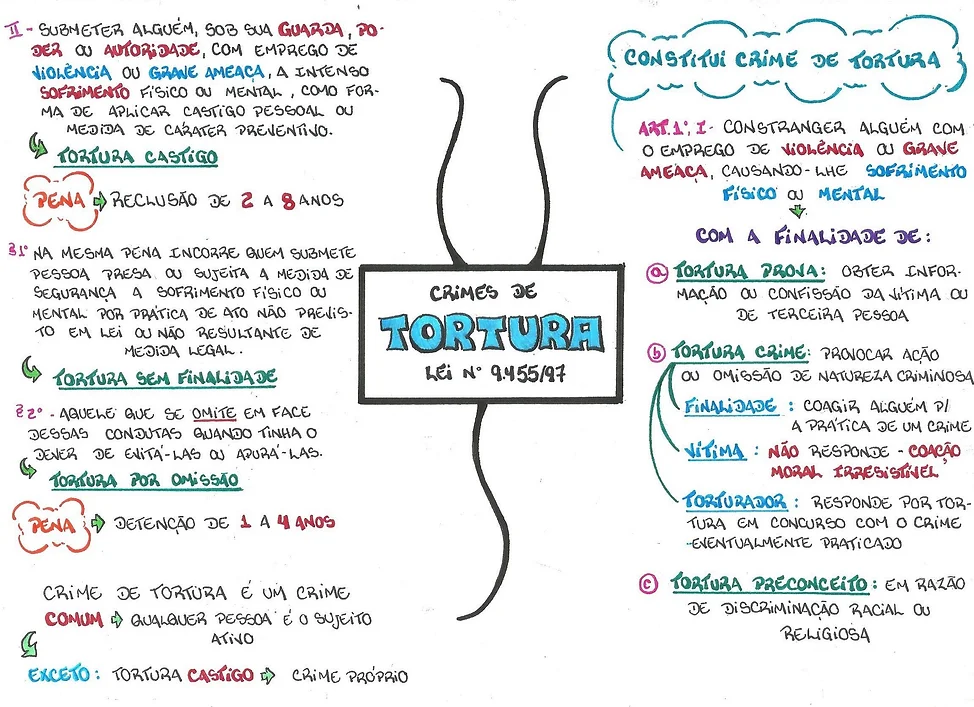 CRIMES DE
TORTURA
LEI Nº 9.455/97
CONSTITUI CRIME DE TORTURA
ART. 1º, I - CONSTRANGER ALGUÉM COM
O EMPREGO DE VIOLÊNCIA OU GRAVE
AMEAÇA, CAUSANDO-LHE SOFRIMENTO
FÍSICO OU MENTAL
COM A FINALIDADE DE:
a TORTURA PROVA: OBTER INFOR-
MAÇÃO OU CONFISSÃO DA VÍTIMA OU
DE TERCEIRA PESSOA
b TORTURA CRIME: PROVOCAR AÇÃO
OU OMISSÃO DE NATUREZA CRIMINOSA
FINALIDADE : COAGIR ALGUÉM P/
A PRÁTICA DE UM CRIME
VÍTIMA : NÃO RESPONDE - COAÇÃO
MORAL IRRESISTÍVEL
TORTURADOR : RESPONDE POR TOR-
TURA EM CONCURSO COM O CRIME
EVENTUALMENTE PRATICADO
c TORTURA PRECONCEITO : EM RAZÃO
DE DISCRIMINAÇÃO RACIAL OU
RELIGIOSA
II - SUBMETER ALGUÉM, SOB SUA GUARDA, PO-
DER OU AUTORIDADE, COM EMPREGO DE
VIOLÊNCIA OU GRAVE AMEAÇA, A INTENSO
SOFRIMENTO FÍSICO OU MENTAL, COMO FOR-
MA DE APLICAR CASTIGO PESSOAL OU
MEDIDA DE CARÁTER PREVENTIVO.
TORTURA CASTIGO
PENA RECLUSÃO DE 2 A 8 ANOS
§1º NA MESMA PENA INCORRE QUEM SUBMETE
PESSOA PRESA OU SUJEITA A MEDIDA DE
SEGURANÇA A SOFRIMENTO FÍSICO OU
MENTAL POR PRÁTICA DE ATO NÃO PREVIS-
TO EM LEI OU NÃO RESULTANTE DE
MEDIDA LEGAL.
TORTURA SEM FINALIDADE
§2º - AQUELE QUE SE OMITE EM FACE
DESSAS CONDUTAS QUANDO TINHA O
DEVER DE EVITÁ-LAS OU APURÁ-LAS.
TORTURA POR OMISSÃO
PENA DETENÇÃO DE 1 A 4 ANOS
CRIME DE TORTURA É UM CRIME
COMUM QUALQUER PESSOA É O SUJEITO
ATIVO
EXCETO : TORTURA CASTIGO CRIME PRÓPRIO